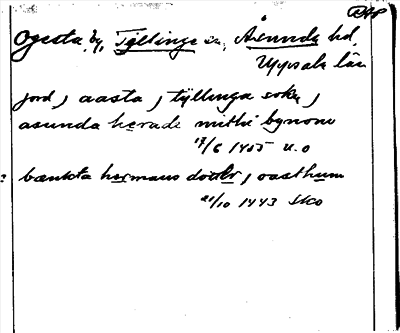 RAP
Ogesta by, Tillinge sn, Åsunda hd,
Uppsala län
jord j aasta j tyllinga sokn j
asunda herade mithi bynom
17/6 1455 u.o
bænkta hermans dottir j oasthum
21/10 1443 Sko